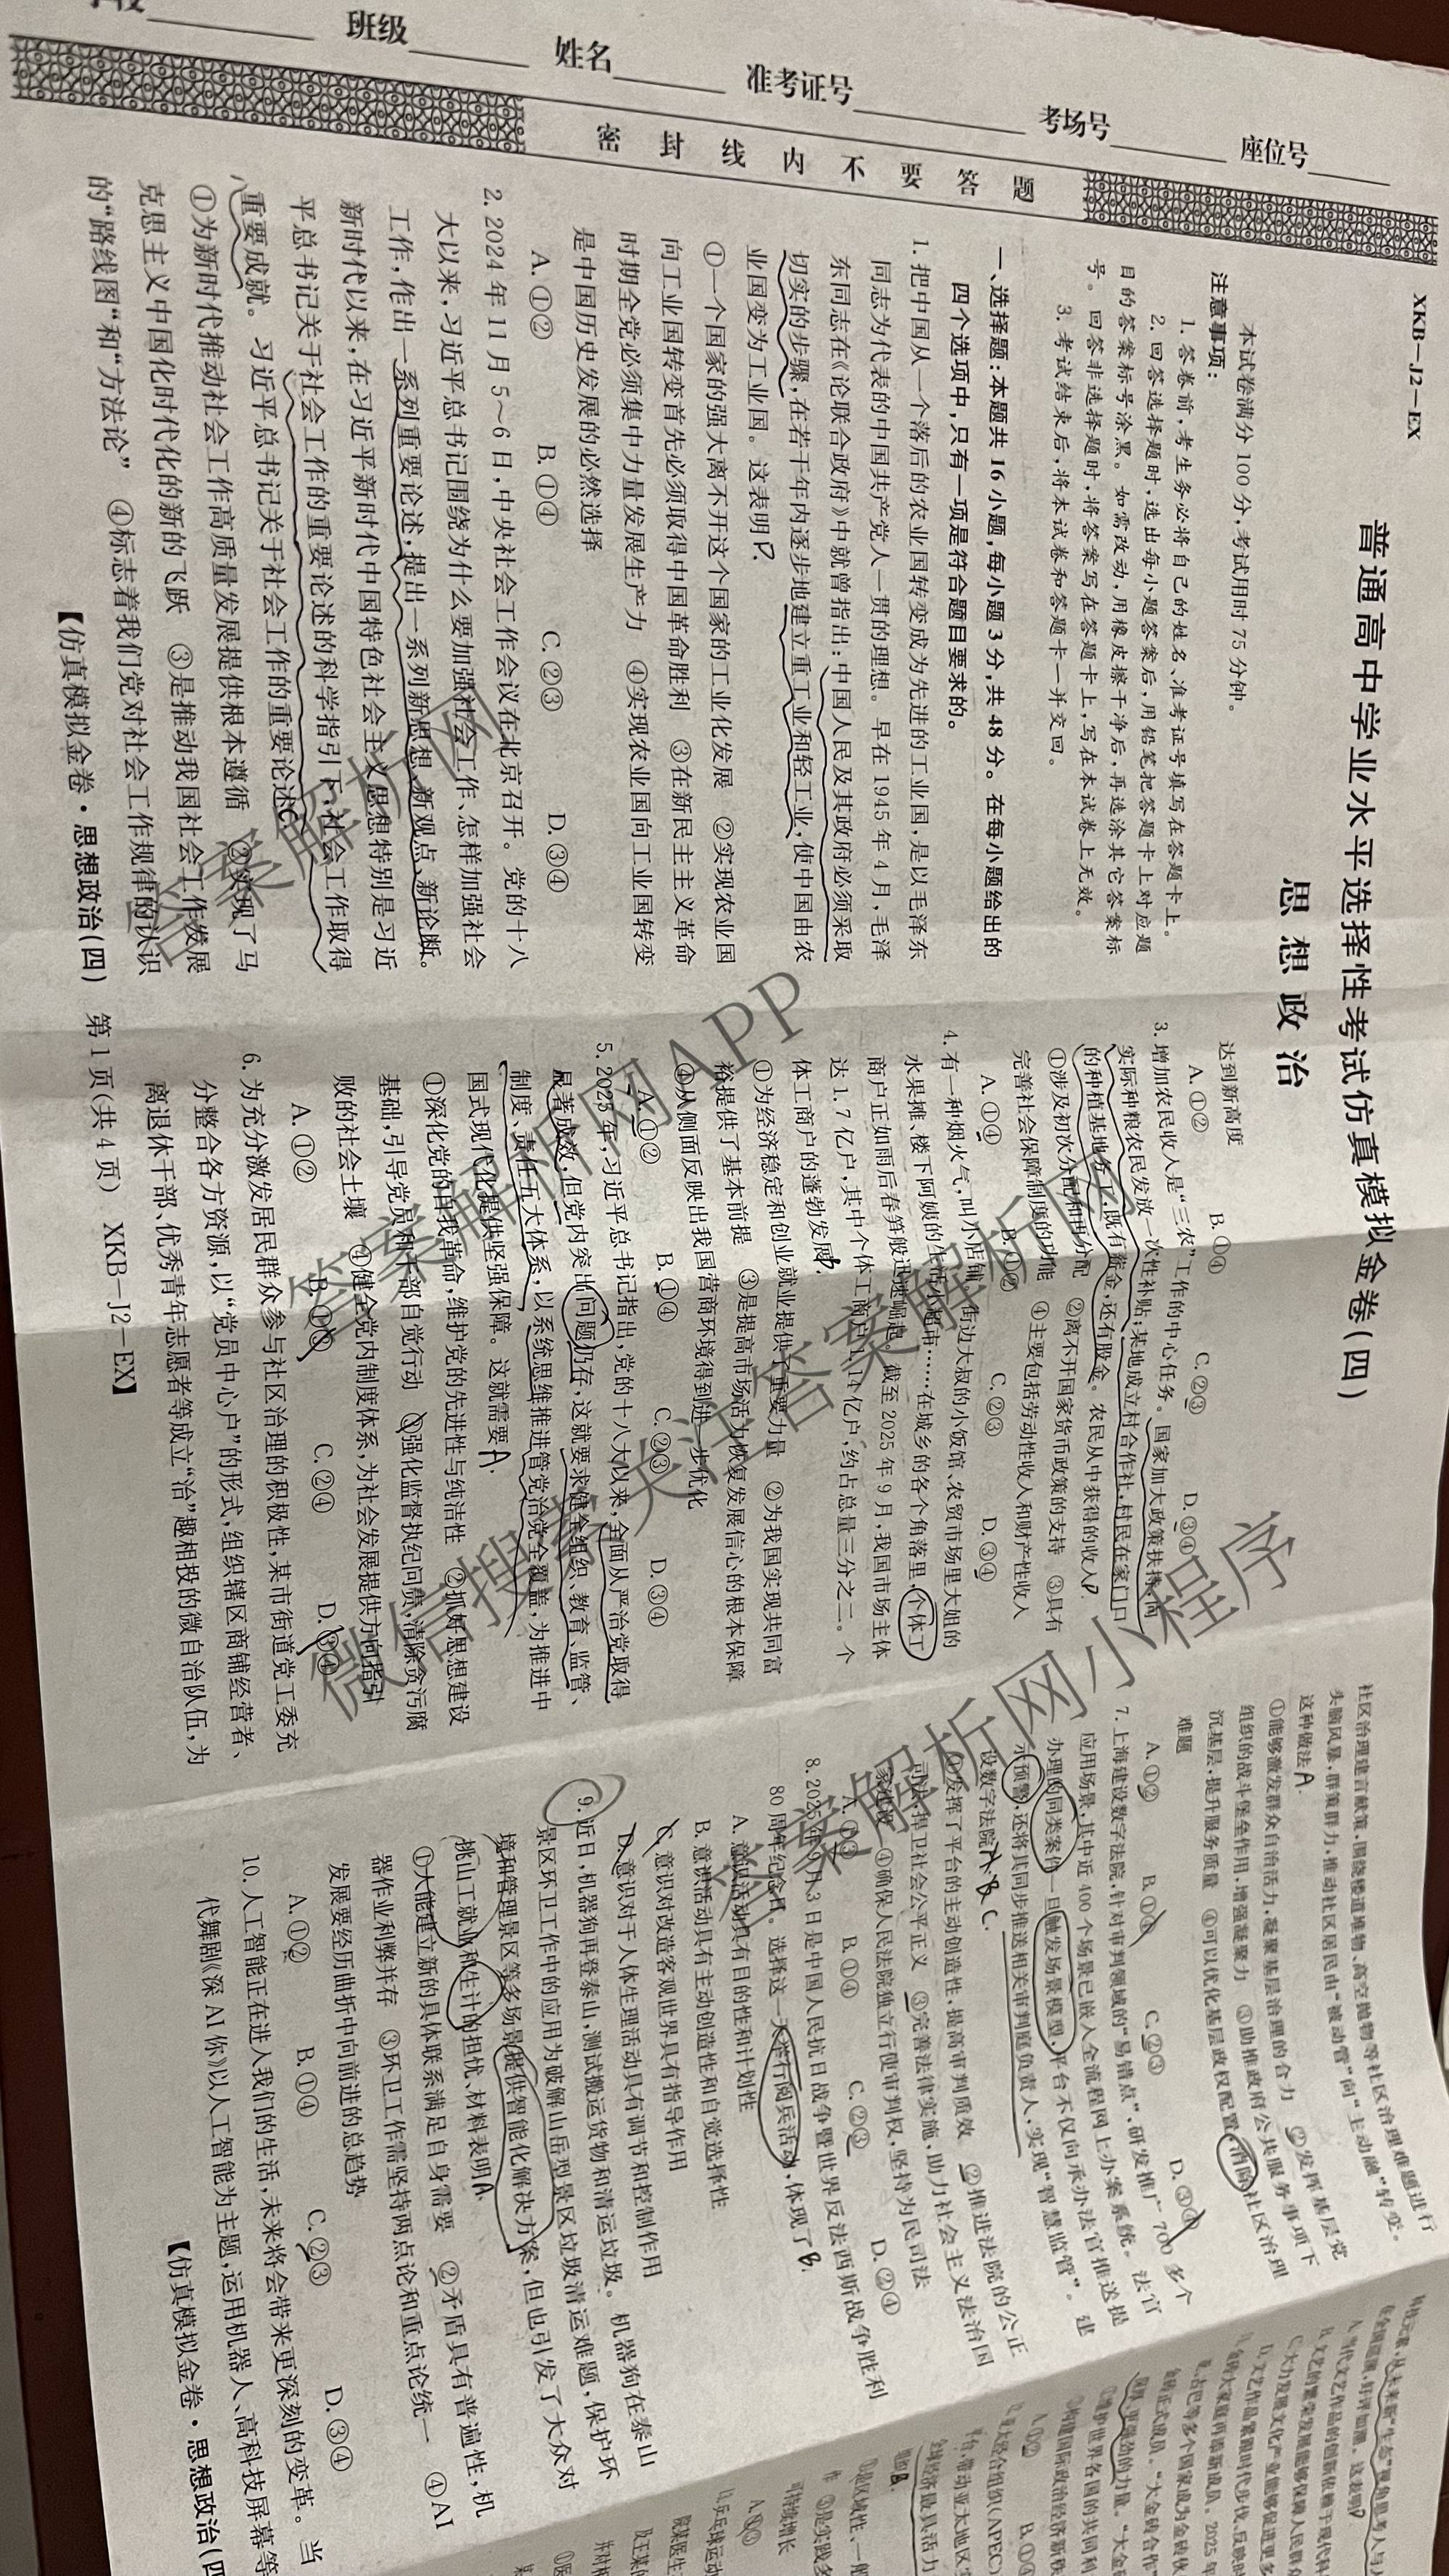 班级
姓名
准考证号
考场号
座位号
密封线内不要答题
XKB—J2—EX
普通高中学业水平选择性考试仿真模拟金卷(四)
思想政治
本试卷满分100分,考试用时75分钟。
注意事项:
1. 答卷前,考生务必将自己的姓名、准考证号填写在答题卡上。
2. 回答选择题时,选出每小题答案后,用铅笔把答题卡上对应题
目的答案标号涂黑。如需改动,用橡皮擦干净后,再选涂其它答案标
号。回答非选择题时,将答案写在答题卡上,写在本试卷上无效。
3. 考试结束后,将本试卷和答题卡一并交回。
一、选择题:本题共16小题,每小题3分,共48分。在每小题给出的
四个选项中,只有一项是符合题目要求的。
1. 把中国从一个落后的农业国转变成为先进的工业国,是以毛泽东
同志为代表的中国共产党人一贯的理想。早在1945年4月,毛泽
东同志在《论联合政府》中就曾指出:中国人民及其政府必须采取
切实的步骤,在若干年内逐步地建立重工业和轻工业,使中国由农
业国变为工业国。这表明 D.
①一个国家的强大离不开这个国家的工业化发展 ②实现农业国
向工业国转变首先必须取得中国革命胜利 ③在新民主主义革命
时期全党必须集中力量发展生产力 ④实现农业国向工业国转变
是中国历史发展的必然选择
A.①② B.①④ C.②③ D.③④
2. 2024年11月5~6日,中央社会工作会议在北京召开。党的十八
大以来,习近平总书记围绕为什么要加强社会工作、怎样加强社会
工作,作出一系列重要论述,提出一系列新思想、新观点、新论断。
新时代以来,在习近平新时代中国特色社会主义思想特别是习近
平总书记关于社会工作的重要论述的科学指引下,社会工作取得
重要成就。习近平总书记关于社会工作的重要论述 C
①为新时代推动社会工作高质量发展提供根本遵循 ②实现了马
克思主义中国化时代化的新的飞跃 ③是推动我国社会工作发展
的“路线图”和“方法论” ④标志着我们党对社会工作规律的认识
【仿真模拟金卷·思想政治(四) 第1页(共4页) XKB—J2—EX】
达到新高度
A.①② B.①④ C.②③ D.③④
3. 增加农民收入是“三农”工作的中心任务。国家加大政策扶持,向
实际种粮农民发放一次性补贴;某地成立村合作社,村民在家门口
的种植基地务工,既有薪金,还有股金。农民从中获得的收入 D.
①涉及初次分配和再分配 ②离不开国家货币政策的支持 ③具有
完善社会保障制度的功能 ④主要包括劳动性收入和财产性收入
A.①④ B.①② C.②③ D.③④
4. 有一种烟火气,叫小店铺。街边大叔的小饭馆、农贸市场里大姐的
水果摊、楼下阿姨的生活小超市……在城乡的各个角落里,个体工
商户正如雨后春笋般迅速崛起。截至2025年9月,我国市场主体
达1.7亿户,其中个体工商户1.14亿户,约占总量三分之二。个
体工商户的蓬勃发展
①为经济稳定和创业就业提供了重要力量 ②为我国实现共同富
裕提供了基本前提 ③是提高市场活力恢复发展信心的根本保障
④从侧面反映出我国营商环境得到进一步优化
A.①② B.①④ C.②③ D.③④
5. 2025年,习近平总书记指出,党的十八大以来,全面从严治党取得
显著成效,但党内突出问题仍存,这就要求健全组织、教育、监管、
制度、责任五大体系,以系统思维推进管党治党全覆盖,为推进中
国式现代化提供坚强保障。这就需要 A.
①深化党的自我革命,维护党的先进性与纯洁性 ②抓好思想建设
基础,引导党员和干部自觉行动 ③强化监督执纪问责,清除贪污腐
败的社会土壤 ④健全党内制度体系,为社会发展提供方向指引
A.①② B.①③ C.②④ D.③④
6. 为充分激发居民群众参与社区治理的积极性,某市街道党工委充
分整合各方资源,以“党员中心户”的形式,组织辖区商铺经营者、
离退休干部、优秀青年志愿者等成立“治”趣相投的微自治队伍,为
社区治理建言献策,围绕楼道堆物、高空抛物等社区治理难题进行
头脑风暴,群策群力,推动社区居民由“被动管”向“主动融”转变。
这种做法 A.
①能够激发群众自治活力,凝聚基层治理的合力 ②发挥基层党
组织的战斗堡垒作用,增强凝聚力 ③助推政府公共服务事项下
沉基层,提升服务质量 ④可以优化基层政权配置,消除社区治理
难题
A.①② B.①④ C.②③ D.③④
7. 上海建设数字法院,针对审判领域的“易错点”,研发推广700多个
应用场景,其中近400个场景已嵌入全流程网上办案系统。法官
办理的同类案件一旦触发场景模型,平台不仅向承办法官推送提
示预警,还将其同步推送相关审判庭负责人,实现“智慧监管”。建
设数字法院 C.
①发挥了平台的主动创造性,提高审判质效 ②推进法院的公正
司法,捍卫社会公平正义 ③完善法律实施,助力社会主义法治国
家建设 ④确保人民法院独立行使审判权,坚持为民司法
A.①③ B.①④ C.②③ D.②④
8. 2025年9月3日是中国人民抗日战争暨世界反法西斯战争胜利
80周年纪念日。选择这一天举行阅兵活动,体现了 B.
A. 意识活动具有目的性和计划性
B. 意识活动具有主动创造性和自觉选择性
C. 意识对改造客观世界具有指导作用
D. 意识对于人体生理活动具有调节和控制作用
9. 近日,机器狗再登泰山,测试搬运货物和清运垃圾。机器狗在泰山
景区环卫工作中的应用为破解山岳型景区垃圾清运难题,保护环
境和管理景区等多场景提供智能化解决方案,但也引发了大众对
挑山工就业和生计的担忧、材料表明 A.
①人能建立新的具体联系满足自身需要 ②矛盾具有普遍性,机
器作业利弊并存 ③环卫工作需坚持两点论和重点论统一 ④AI
发展要经历曲折中向前进的总趋势
A.①② B.①④ C.②③ D.③④
10. 人工智能正在进入我们的生活,未来将会带来更深刻的变革。当
代舞剧《深AI你》以人工智能为主题,运用机器人、高科技屏幕等
【仿真模拟金卷·思想政治(四
答案解析网
答案解析网APP
微信搜索关注答案解析网
答案解析网小程序